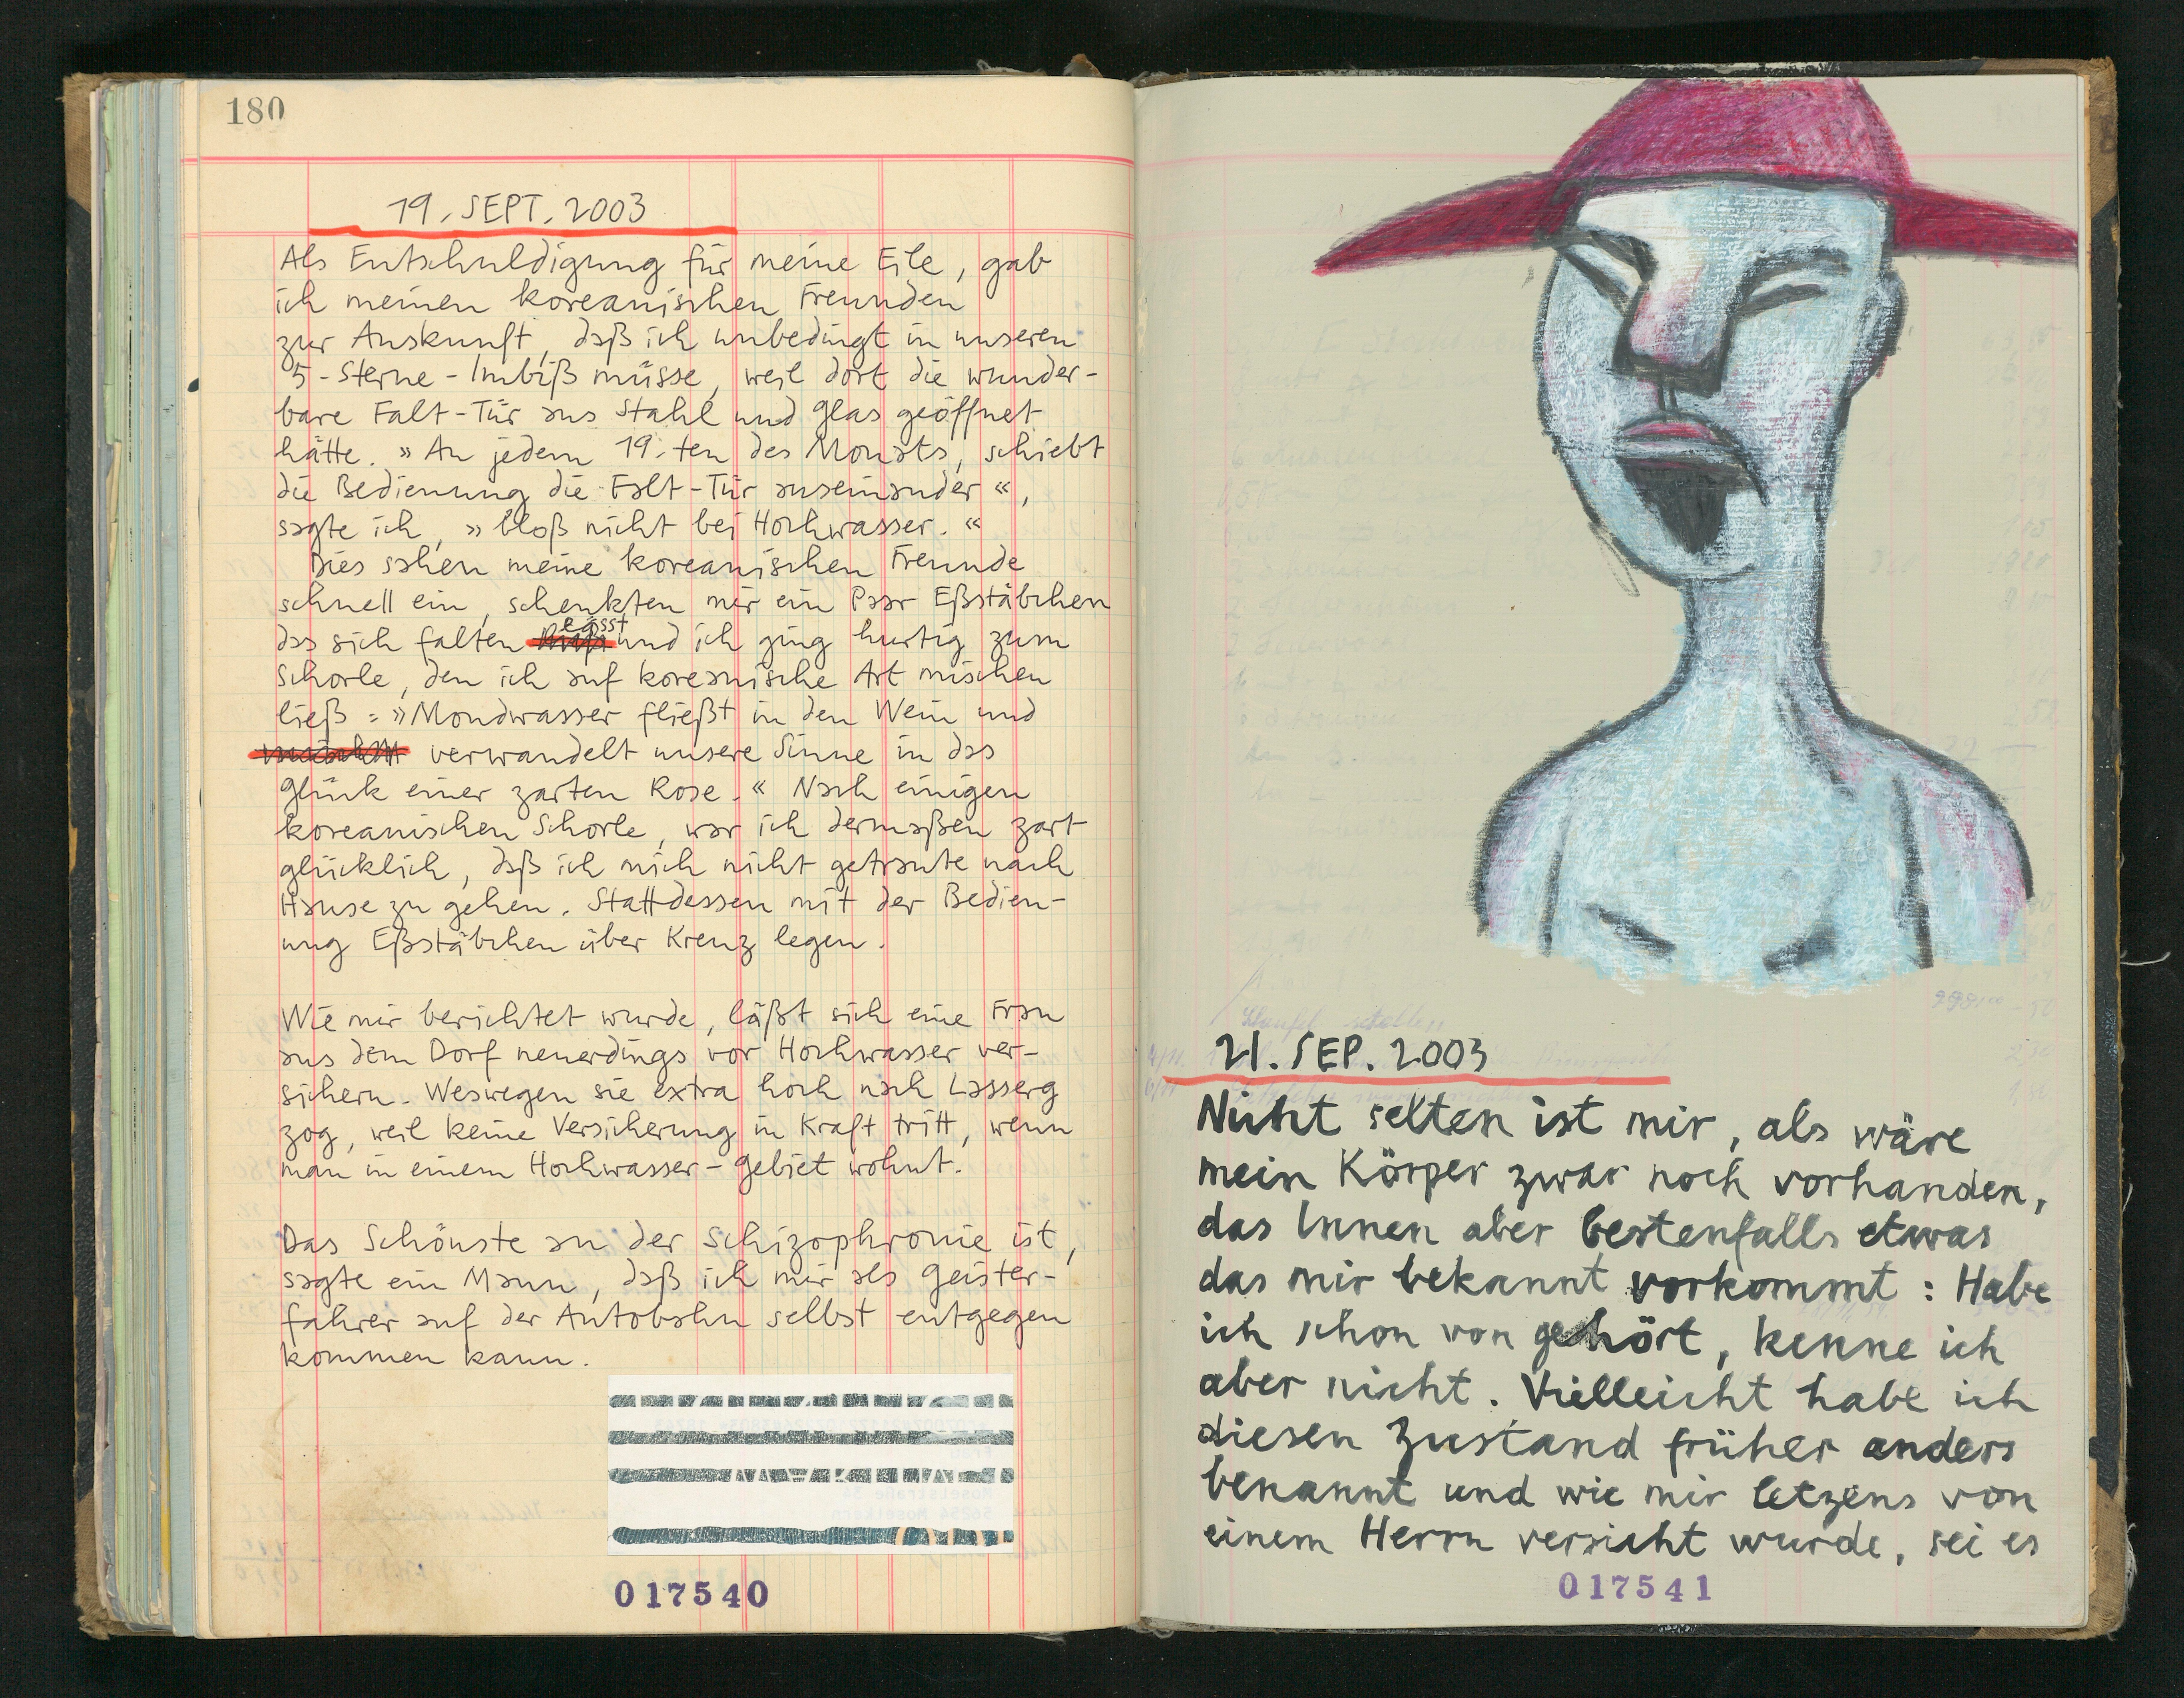 180
19. SEPT. 2003
Als Entschuldigung für meine Eile, gab
ich meinen koreanischen Freunden
zur Auskunft, daß ich unbedingt in unseren
5-Sterne-Imbiß müsse, weil dort die wunder-
bare Falt-Tür aus Stahl und Glas geöffnet
hätte. »An jedem 19.ten des Monats, schiebt
die Bedienung die Falt-Tür auseinander«,
sagte ich, »bloß nicht bei Hochwasser.«
Dies sahen meine koreanischen Freunde
schnell ein, schenkten mir ein Paar Eßstäbchen
das sich falten lässt und ich ging hurtig zum
Schorle, den ich auf koreanische Art mischen
ließ: »Mondwasser fließt in den Wein und
verwandelt unsere Sinne in das
Glück einer zarten Rose.« Nach einigen
koreanischen Schorle, war ich dermaßen zart
glücklich, daß ich mich nicht getraute nach
Hause zu gehen. Stattdessen mit der Bedien-
ung Eßstäbchen über Kreuz legen.
Wie mir berichtet wurde, läßt sich eine Frau
aus dem Dorf neuerdings vor Hochwasser ver-
sichern. Weswegen sie extra hoch nach Lasserg
zog, weil keine Versicherung in Kraft tritt, wenn
man in einem Hochwasser-Gebiet wohnt.
Das Schönste an der Schizophronie ist,
sagte ein Mann, daß ich mir als Geister-
fahrer auf der Autobahn selbst entgegen
kommen kann.
017540
21. SEP. 2003
Nicht selten ist mir, als wäre
mein Körper zwar noch vorhanden,
das Innen aber bestenfalls etwas
das mir bekannt vorkommt: Habe
ich schon von gehört, kenne ich
aber nicht. Vielleicht habe ich
diesen Zustand früher anders
benannt und wie mir letzens von
einem Herrn versicht wurde, sei es
017541